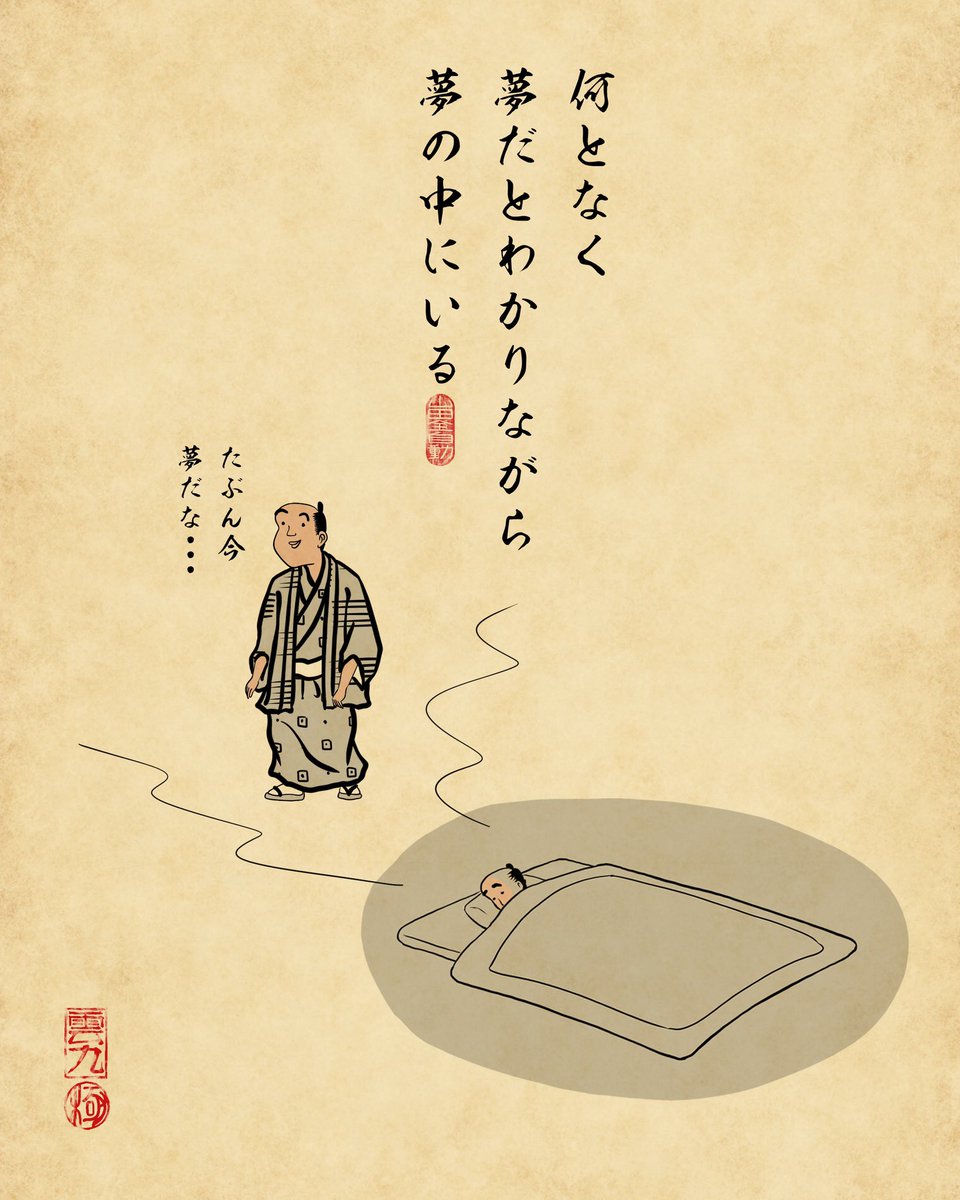 何となく
夢だとわかりながら
夢の中にいる
たぶん今
夢だな・・・